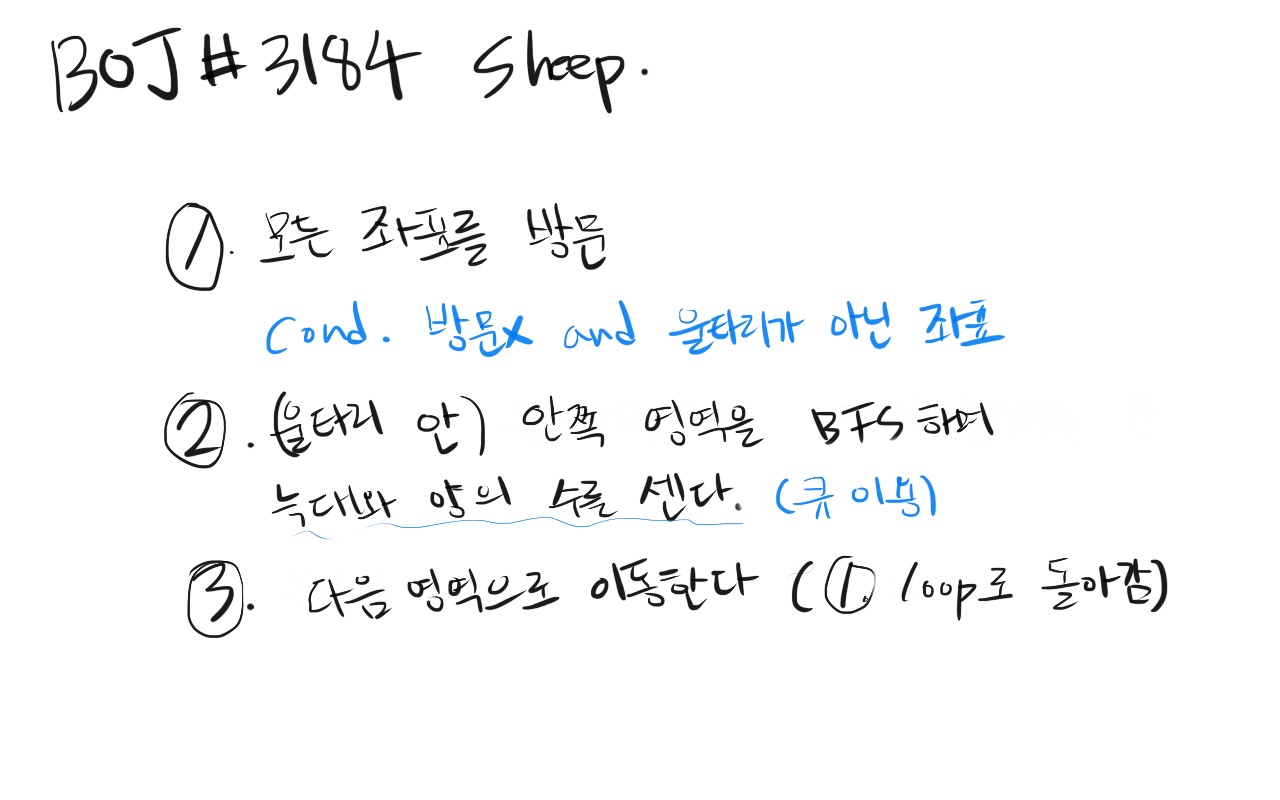 BOJ # 3184 Sheep.
①. 모든 좌표를 방문
Cond. 방문x and 울타리가 아닌 좌표
②. (울타리 안) 안쪽 영역을 BFS 하며
늑대와 양의 수를 센다. (큐 이용)
③. 다음 영역으로 이동한다 (①. loop로 돌아감)